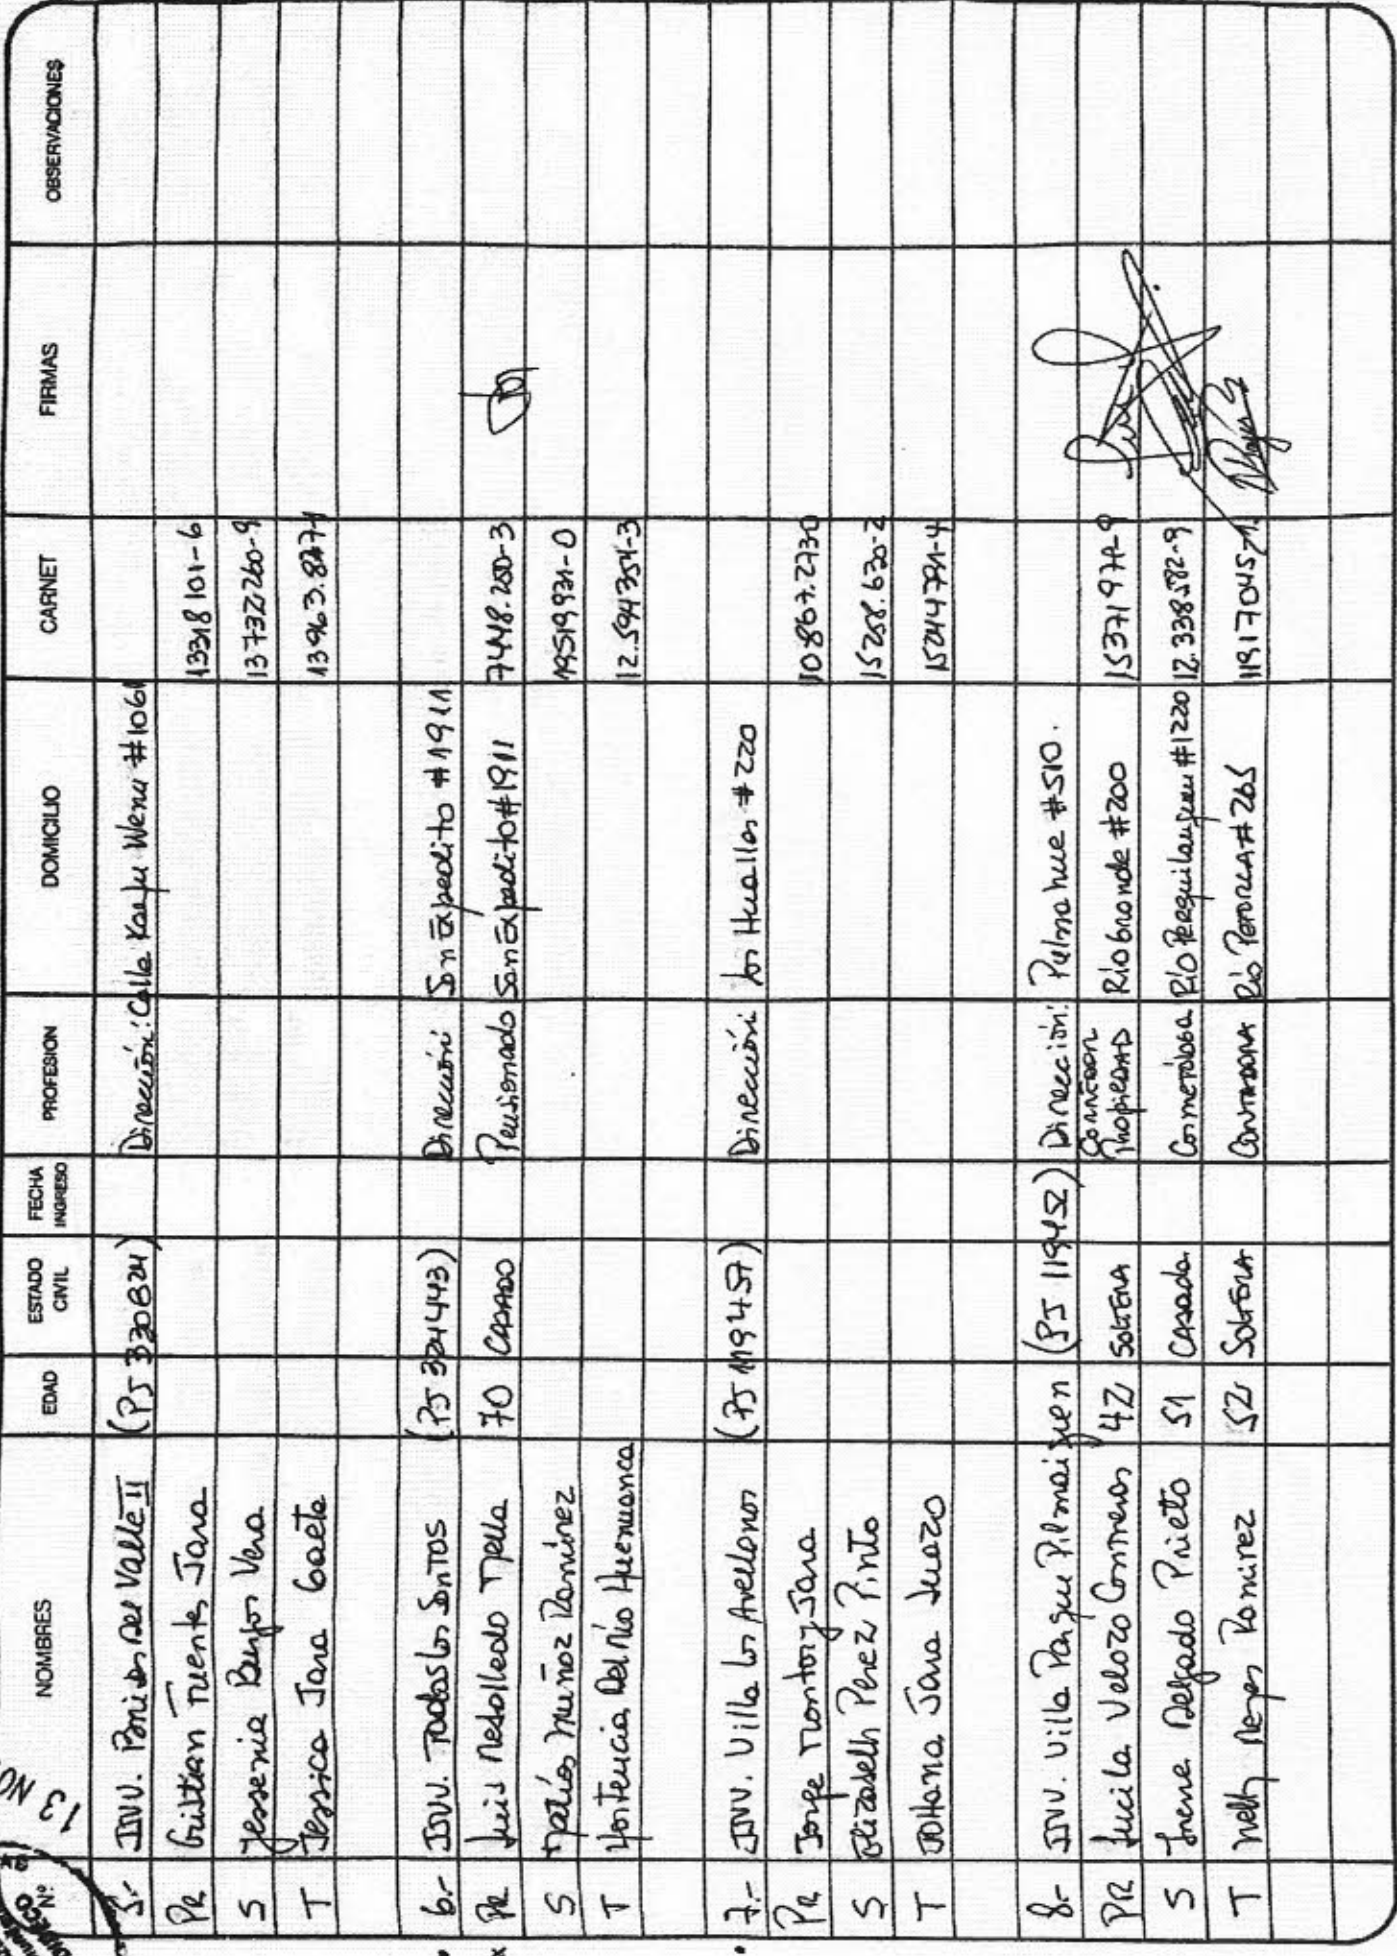 13 NO
DIDECO
Nº NOMBRES EDAD ESTADO CIVIL FECHA INGRESO PROFESION DOMICILIO CARNET FIRMAS OBSERVACIONES
5.- JJVV. Del Valle II (PJ 330824) Dirección: Calle Wenu #1061
PR Cristian Fuentes Jara 13318101-6
S Yessenia Burgos Vera 13732260-9
T Jessica Jara Gaete 13963.827-1
6.- JJVV. Todos los Santos (PJ 324443) Dirección San Expedito #1911
PR Luis Rebolledo 70 Casado Pensionado San Expedito #1911 7448.260-3
S Matías Muñoz Ramírez 19519931-0
T Hortencia Del Río Huenuanca 12.594354-3
7.- JJVV. Villa los Avellanos (PJ 119457) Dirección los Huallas #220
PR Jorge Montory Jara 10867.2730
S Elizabeth Perez Pinto 15258.630-2
T Johana Jara 15244791-4
8.- JJVV. Villa Parque Pilmaiquen (PJ 119452) Dirección: Pulmahue #510.
PR Lucila Velozo Contreras 42 Soltera Propiedad Río Grande #200 1537197-9
S Irene Delgado Prieto 51 Casada Cosmetóloga Río Perquilauquen #1220 12.338582-9
T Nelly Reyes Ramirez 52 Soltera Contadora Río Petorca #265 11917045-1